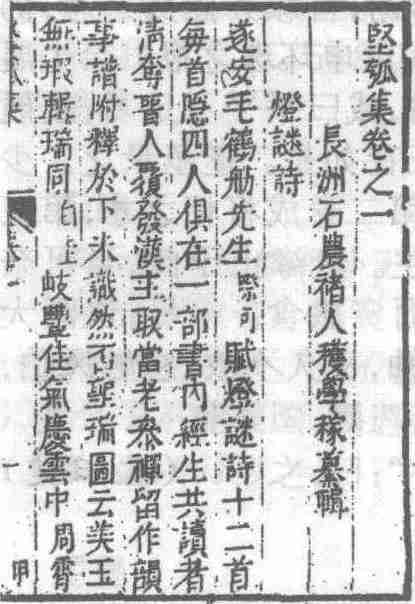 堅瓠集卷之一
長洲石農褚人穫學稼纂輯
燈謎詩
遂安毛鶴舫先生際可賦燈謎詩十二首
每首隱四人俱在一部書內經生共讀者
清奪晉人覆發漢主取當老叅禪留作韻
事譜附釋於下未識然否聖瑞圖云美玉
無瑕輯瑞同白圭岐豐佳氣慶雲中周霄